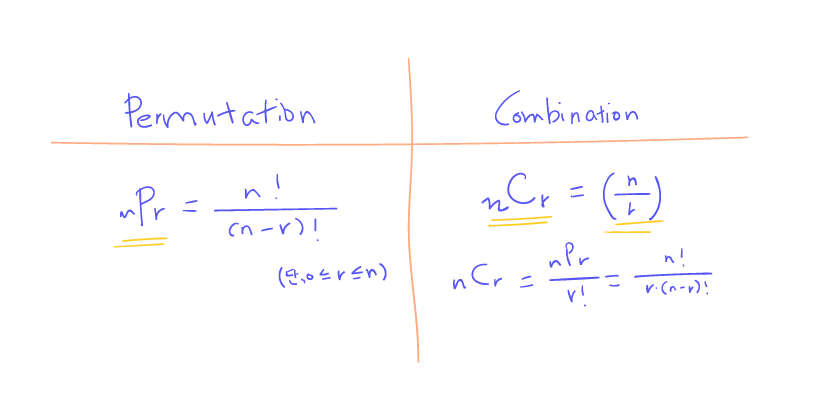 Permutation
Combination
nPr = n! / (n-r)!
(단, 0 ≤ r ≤ n)
nCr = (n/r)
nCr = nPr / r! = n! / r·(n-r)!